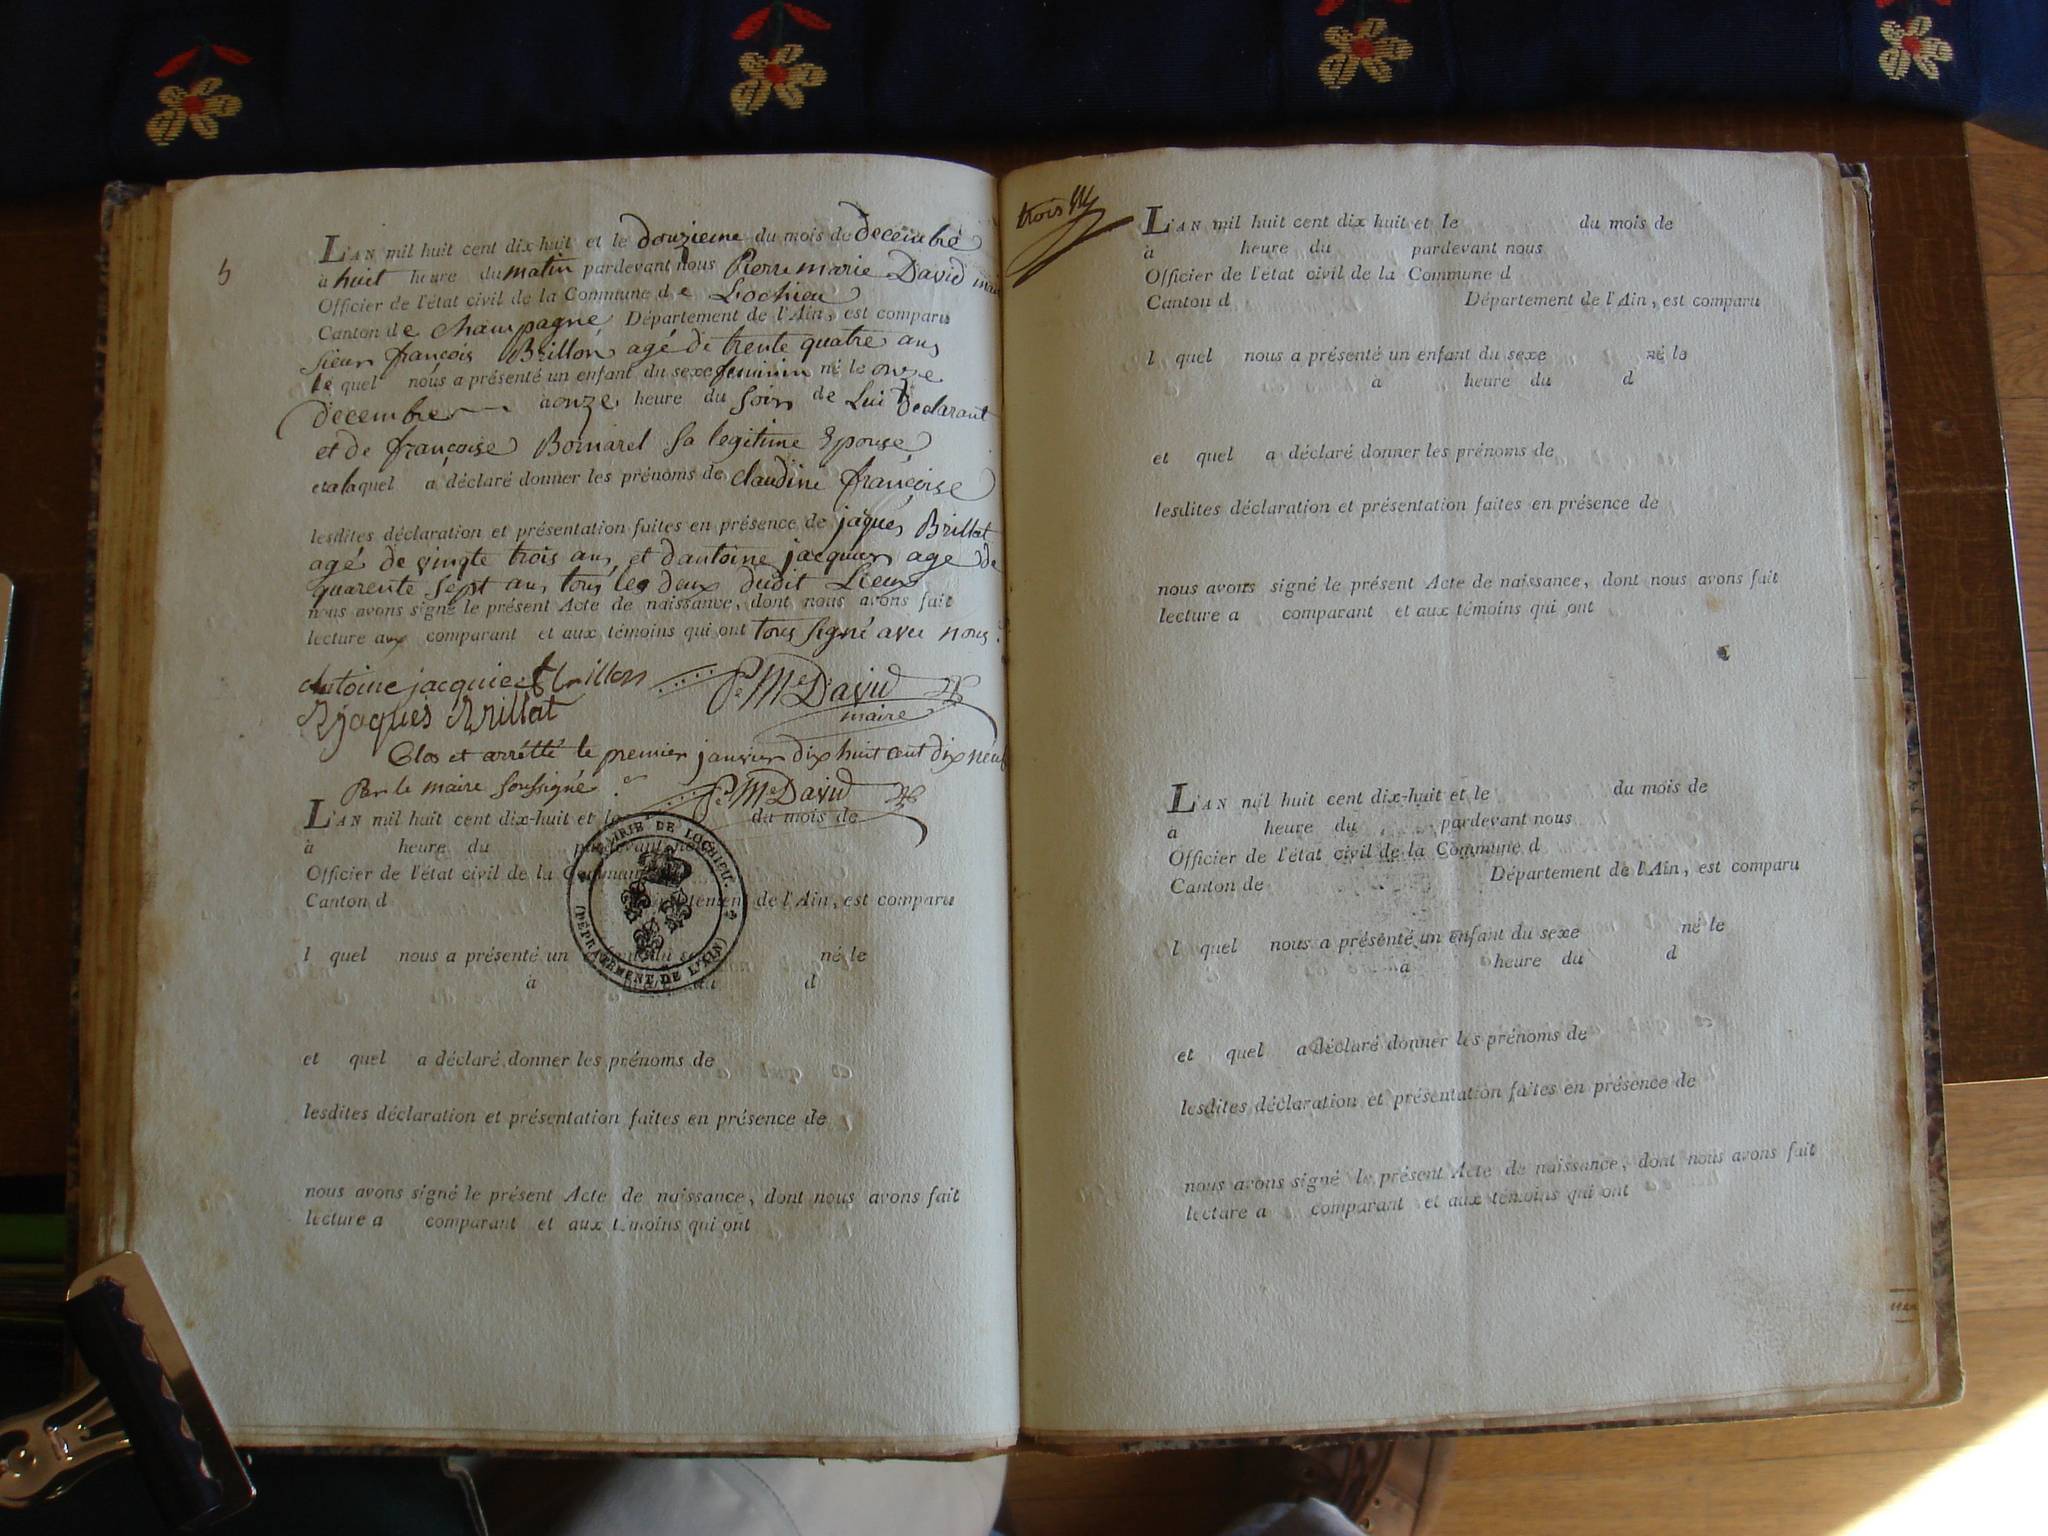 5
L'AN mil huit cent dix-huit et le douzieme du mois de decembre
à huit heure du matin pardevant nous Pierre marie David maire
Officier de l'état civil de la Commune de Lochieu
Canton de champagne Département de l'Ain, est comparu
sieur françois Brillon agé de trente quatre ans
le quel nous a présenté un enfant du sexe feminin né le onze
decembre a onze heure du soir de Lui declarant
et de françoise Bornarel sa legitime Epouse
et a la quel a déclaré donner les prénoms de claudine françoise
lesdites déclaration et présentation faites en présence de jaques Brillat
agé de vingte trois ans et dantoine jacquier age de
quarente sept ans tous les deux dudit Lieux
nous avons signé le présent Acte de naissance, dont nous avons fait
lecture aux comparant et aux témoins qui ont tous signé avec nous
Antoine jacquier Brillon Pe Me David
jaques Brillat maire
Clos et arrétté le premier janvier dix huit cent dix neuf
Par le maire soussigné Pe Me David
L'AN mil huit cent dix-huit et le du mois de
à heure du pardevant nous
Officier de l'état civil de la Commune
Canton d Département de l'Ain, est comparu
l quel nous a présenté un enfant du sexe né le
à heure du d
MAIRIE DE LOCHIEU
(DÉPARTEMENT DE L'AIN)
et quel a déclaré donner les prénoms de
lesdites déclaration et présentation faites en présence de
nous avons signé le présent Acte de naissance, dont nous avons fait
lecture a comparant et aux témoins qui ont
trois
L'AN mil huit cent dix huit et le du mois de
à heure du pardevant nous
Officier de l'état civil de la Commune d
Canton d Département de l'Ain, est comparu
l quel nous a présenté un enfant du sexe né le
à heure du d
et quel a déclaré donner les prénoms de
lesdites déclaration et présentation faites en présence de
nous avons signé le présent Acte de naissance, dont nous avons fait
lecture a comparant et aux témoins qui ont
L'AN mil huit cent dix-huit et le du mois de
à heure du pardevant nous
Officier de l'état civil de la Commune d
Canton de Département de l'Ain, est comparu
l quel nous a présenté un enfant du sexe né le
à heure du d
et quel a déclaré donner les prénoms de
lesdites déclaration et présentation faites en présence de
nous avons signé le présent Acte de naissance, dont nous avons fait
lecture a comparant et aux témoins qui ont